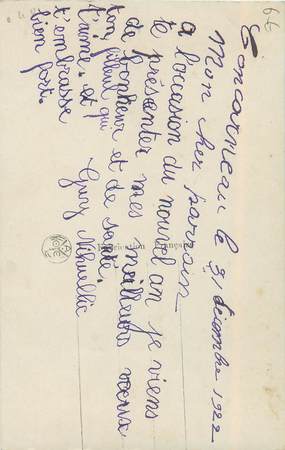 66
Concarneau le 31 décembre 1922
Mon cher parrain
a l'occasion du nouvel an je viens
te présenter mes meilleurs vœux
de bonheur et de santé.
ton filleul qui
t'aime et
t'embrasse
bien fort.
Guy
Fabrication Française